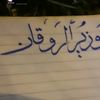 وزير الروقان